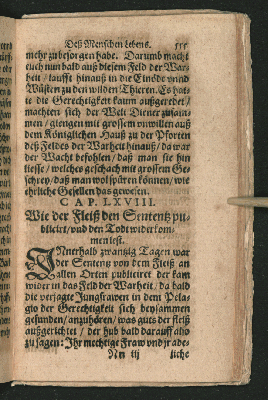 Deß Menschen Lebens. 555
mehr zu besorgen habe. Darumb macht
euch nun bald auß diesem Feld der War-
heit / laufft hinauß in die Einöde vnnd
Wüsten zu den wilden Thieren. Es hat-
te die Gerechtigkeit kaum außgeredet /
machten sich der Welt Diener zusam-
men / giengen mit grossem vnwillen auß
dem Königlichen Hauß zu der Pforten
deß Feldes der Warheit hinauß / da war
der Wacht befohlen / daß man sie hin
liesse / welches geschach mit grossem Ge-
schrey / daß man wol spüren können / wie
ehrliche Gesellen das gewesen.
CAP. LXVIII.
Wie der Fleiß den Sentenz pu-
bliciert / vnd den Todt widerkom-
men lest.
INnerhalb zwanzig Tagen war
der Sentenz von dem Fleiß an
allen Orten publiciret der kam
wider in das Feld der Warheit / da bald
die verjagte Jungfrawen in dem Pela-
gio der Gerechtigkeit sich beysammen
gefunden / anzuhören / was guts der fleiß
außgerichtet / der hub bald darauff also
zu sagen: Ihr mechtige Fraw vnd jr ade-
Nn iij liche